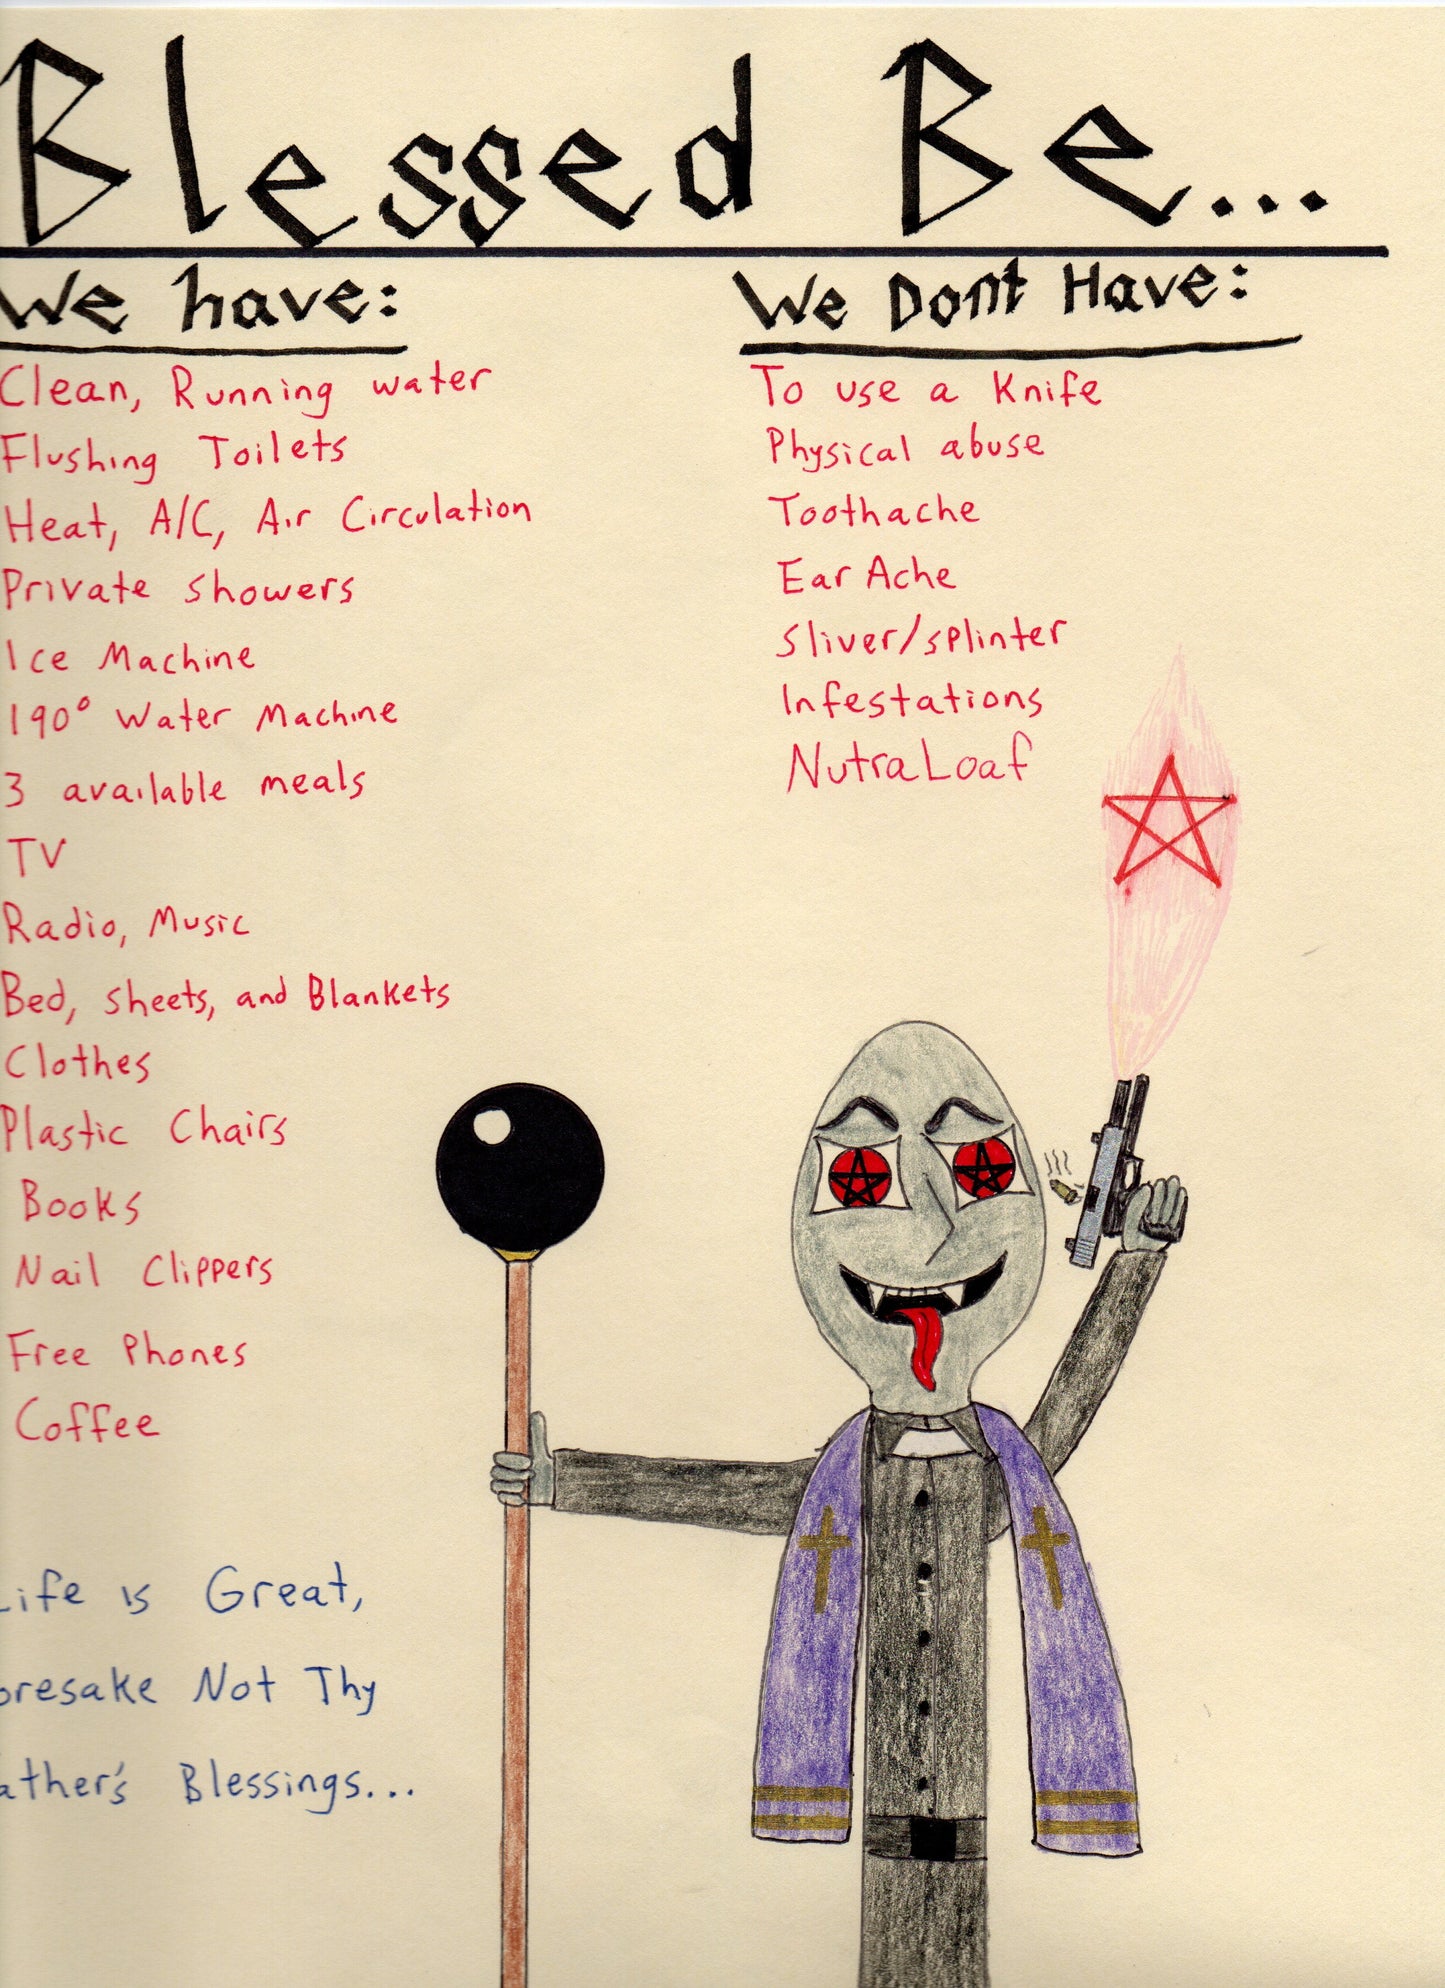 Blessed Be...
We have:
Clean, Running water
Flushing Toilets
Heat, A/C, Air Circulation
Private showers
Ice Machine
190° Water Machine
3 available meals
TV
Radio, Music
Bed, sheets, and Blankets
Clothes
Plastic Chairs
Books
Nail Clippers
Free Phones
Coffee
We Dont Have:
To use a Knife
Physical abuse
Toothache
Ear Ache
Sliver/splinter
Infestations
NutraLoaf
Life is Great,
oresake Not Thy
ather's Blessings...